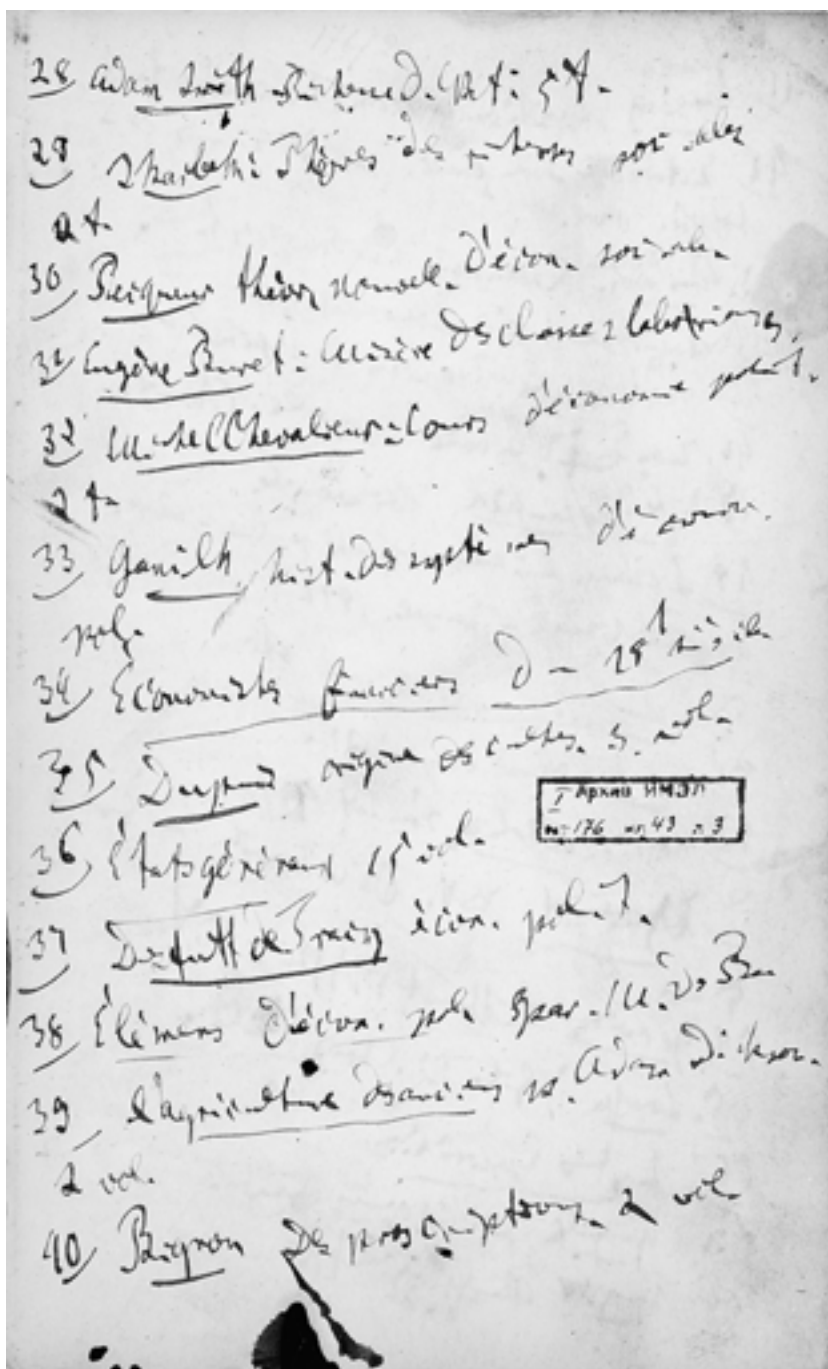 28 Adam Smith Richesse d. Nat: 5 t.
29 Skarbek: Théories des richesses sociales
2 t.
30 Pecqueur théorie nouvelle d'écon. sociale.
31 Eugène Buret: Misère des classes laborieuses.
32 Michel Chevalier: Cours d'économie polit.
2 t.
33 Ganilh hist. des systèmes d'econom.
pol.
34 Économistes financiers d 18t siècle
35 Dupuis origine des cultes. 3. vol.
36 Étatsgéneraux 15 vol.
37 Destutt de Tracy écon. polit.
38 Élémens d'écon. pol. par. M.
39 L'agriculture des anciens p. Adam Dickson.
2 vol.
40 Bignon Des proscriptions. 2 vol.
Архив ИМЭЛ
176 43 3